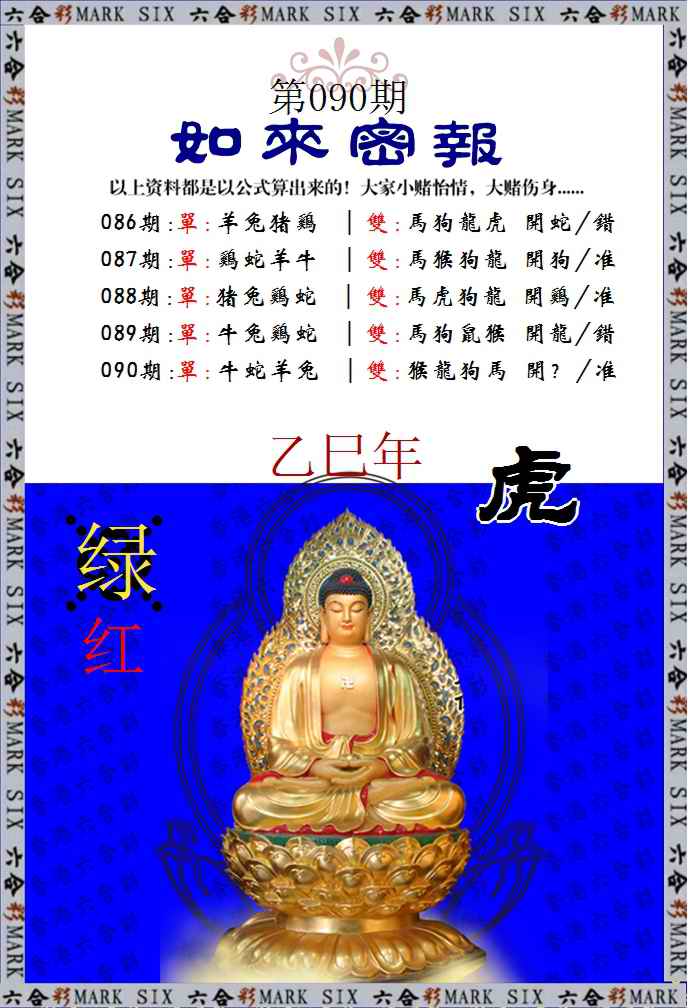 六合彩MARK SIX 六合彩MARK SIX 六合彩MARK SIX 六合彩MARK SIX 六合彩MARK SIX
第090期
如來密報
以上资料都是以公式算出来的！大家小赌怡情，大赌伤身......
086期:單:羊兔猪鷄 | 雙:馬狗龍虎 開蛇/錯
087期:單:鷄蛇羊牛 | 雙:馬猴狗龍 開狗/准
088期:單:猪兔鷄蛇 | 雙:馬虎狗龍 開鷄/准
089期:單:牛兔鷄蛇 | 雙:馬狗鼠猴 開龍/錯
090期:單:牛蛇羊兔 | 雙:猴龍狗馬 開?/准
乙巳年
虎
绿
红
六合彩MARK SIX 六合彩MARK SIX 六合彩MARK SIX 六合彩MARK SIX 六合彩MARK SIX